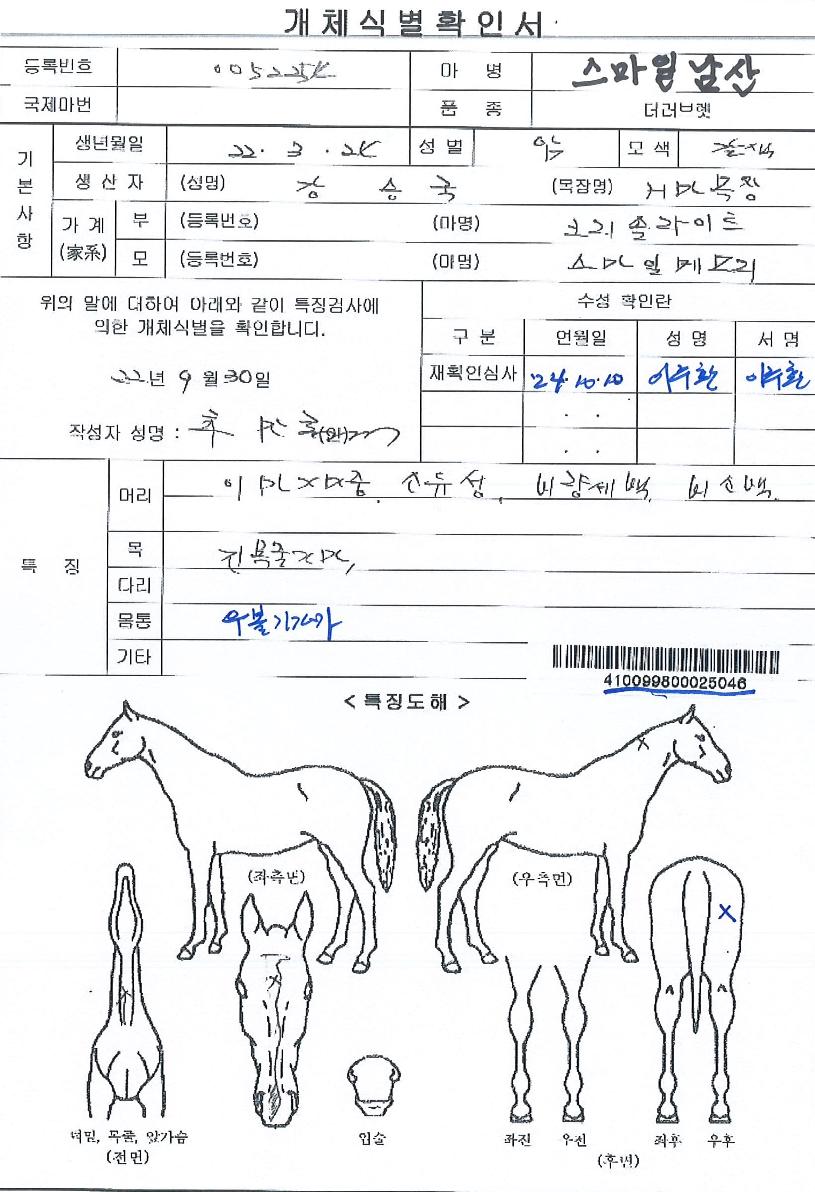 개체식별확인서
등록번호 005225K 마 명 스마일남산
국제마번 품 종 더러브렛
기본사항
생년월일 22. 3. 2K 성별 암 모색 갈색
생산자 (성명) 강 승 국 (목장명) 목장
가계 (家系) 부 (등록번호) (마명) 쏠라이트
모 (등록번호) (마명) 스마일메모리
위의 말에 대하여 아래와 같이 특징검사에
의한 개체식별을 확인합니다.
22년 9월 30일
작성자 성명 : (인)
수성 확인란
구분 연월일 성명 서명
재확인심사 '24.10.10 이수환 이수환
. .
. .
특 징
머리 이마 유성, 비량세백, 비소백
목
다리
몸통
기타
410099800025046
< 특징도해 >
(좌측면) (우측면)
턱밑, 목줄, 앞가슴
(전면)
입술
좌전 우전 좌후 우후
(후면)